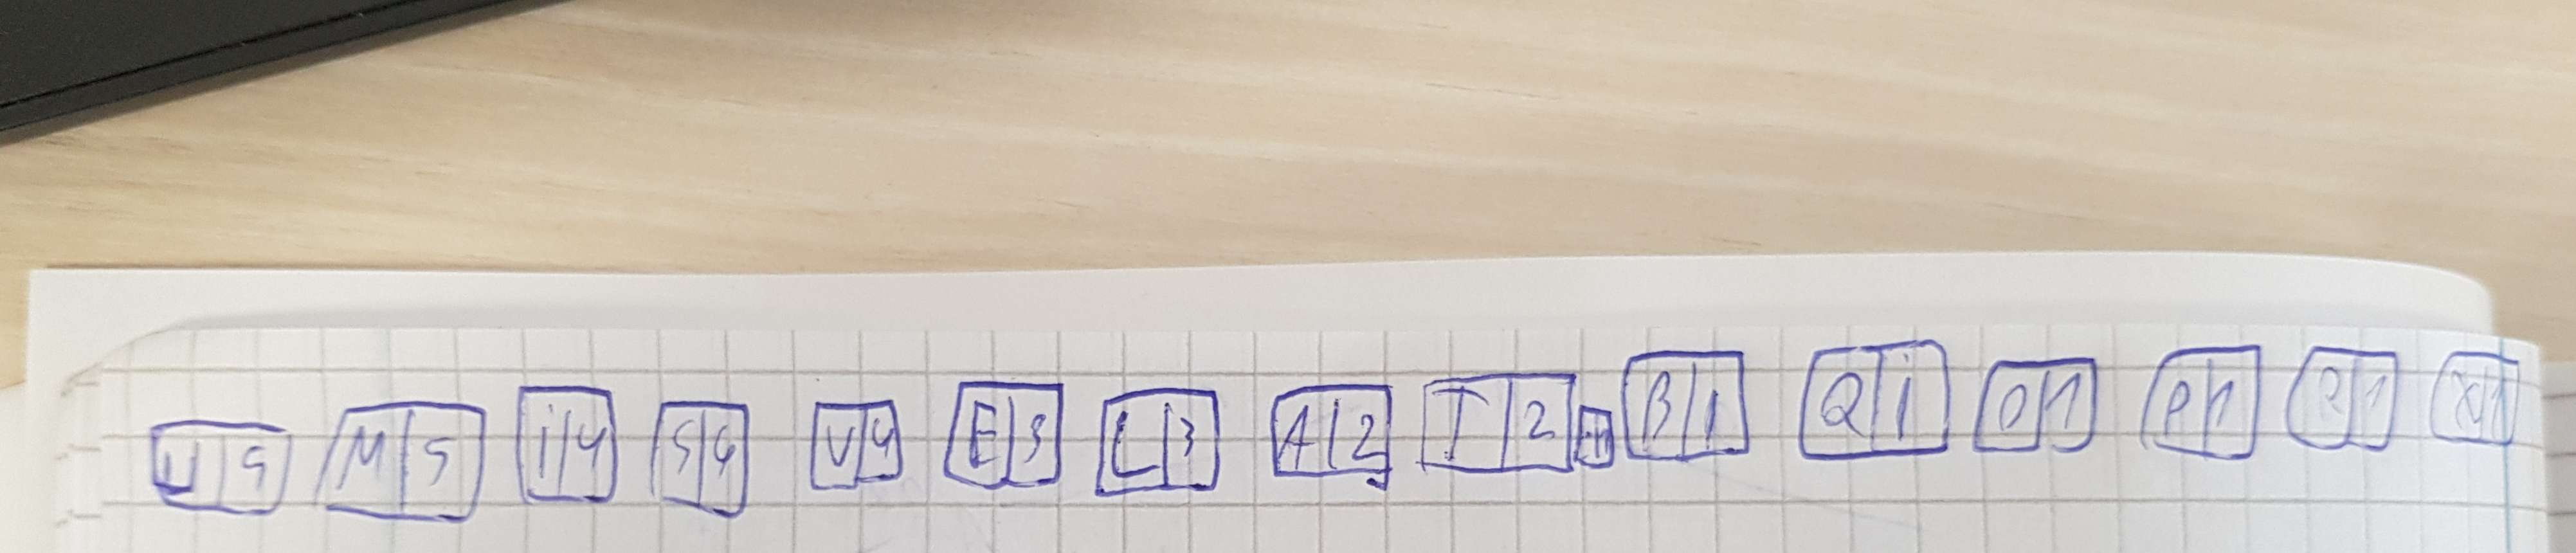 U 5 M 5 i 4 S 4 U 4 E 3 L 3 A 2 T 2 B 1 Q 1 O 1 P 1 R 1 X 1